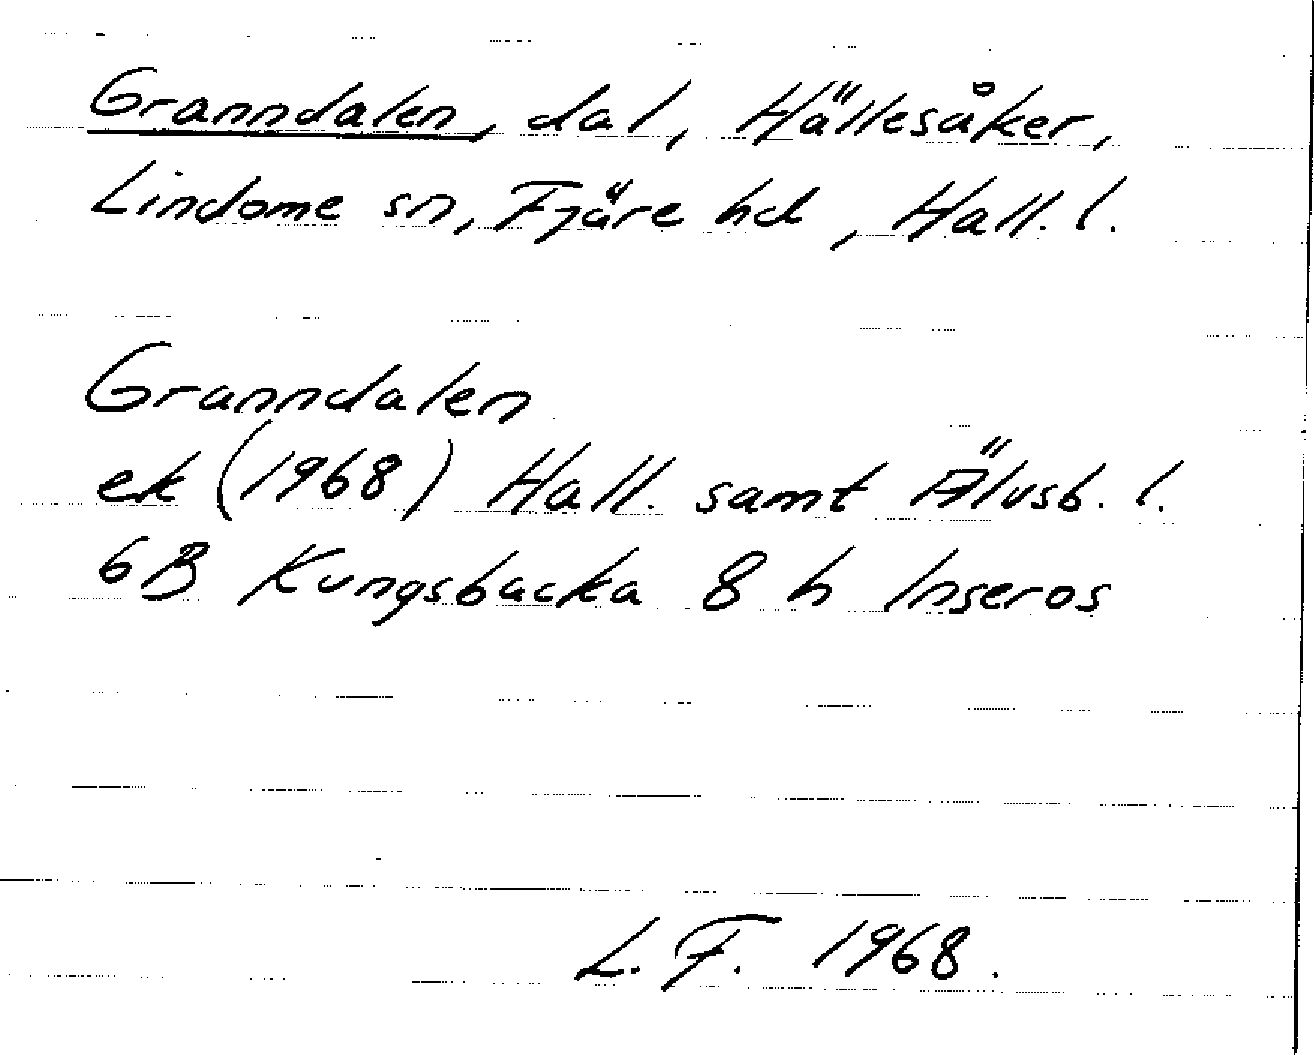 Granndalen, dal, Hällesåker,
Lindome sn, Fjäre hd, Hall. l.
Granndalen
ek (1968) Hall. samt Älvsb. l.
6B Kungsbacka 8 h Inseros
L. F. 1968.